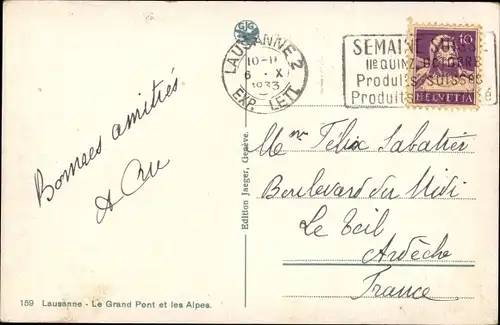 GJG
LAUSANNE 2
10-11
6.X
1933
EXP. LETT.
SEMAINE SUISSE
IIe QUINZ. OCTOBRE
Produits suisses
Produits
10
HELVETIA
Bonnes amitiés
Edition Jaeger, Genève.
Mme Félix Sabatier
Boulevard du Midi
Le Teil
Ardèche
France
159 Lausanne - Le Grand Pont et les Alpes.